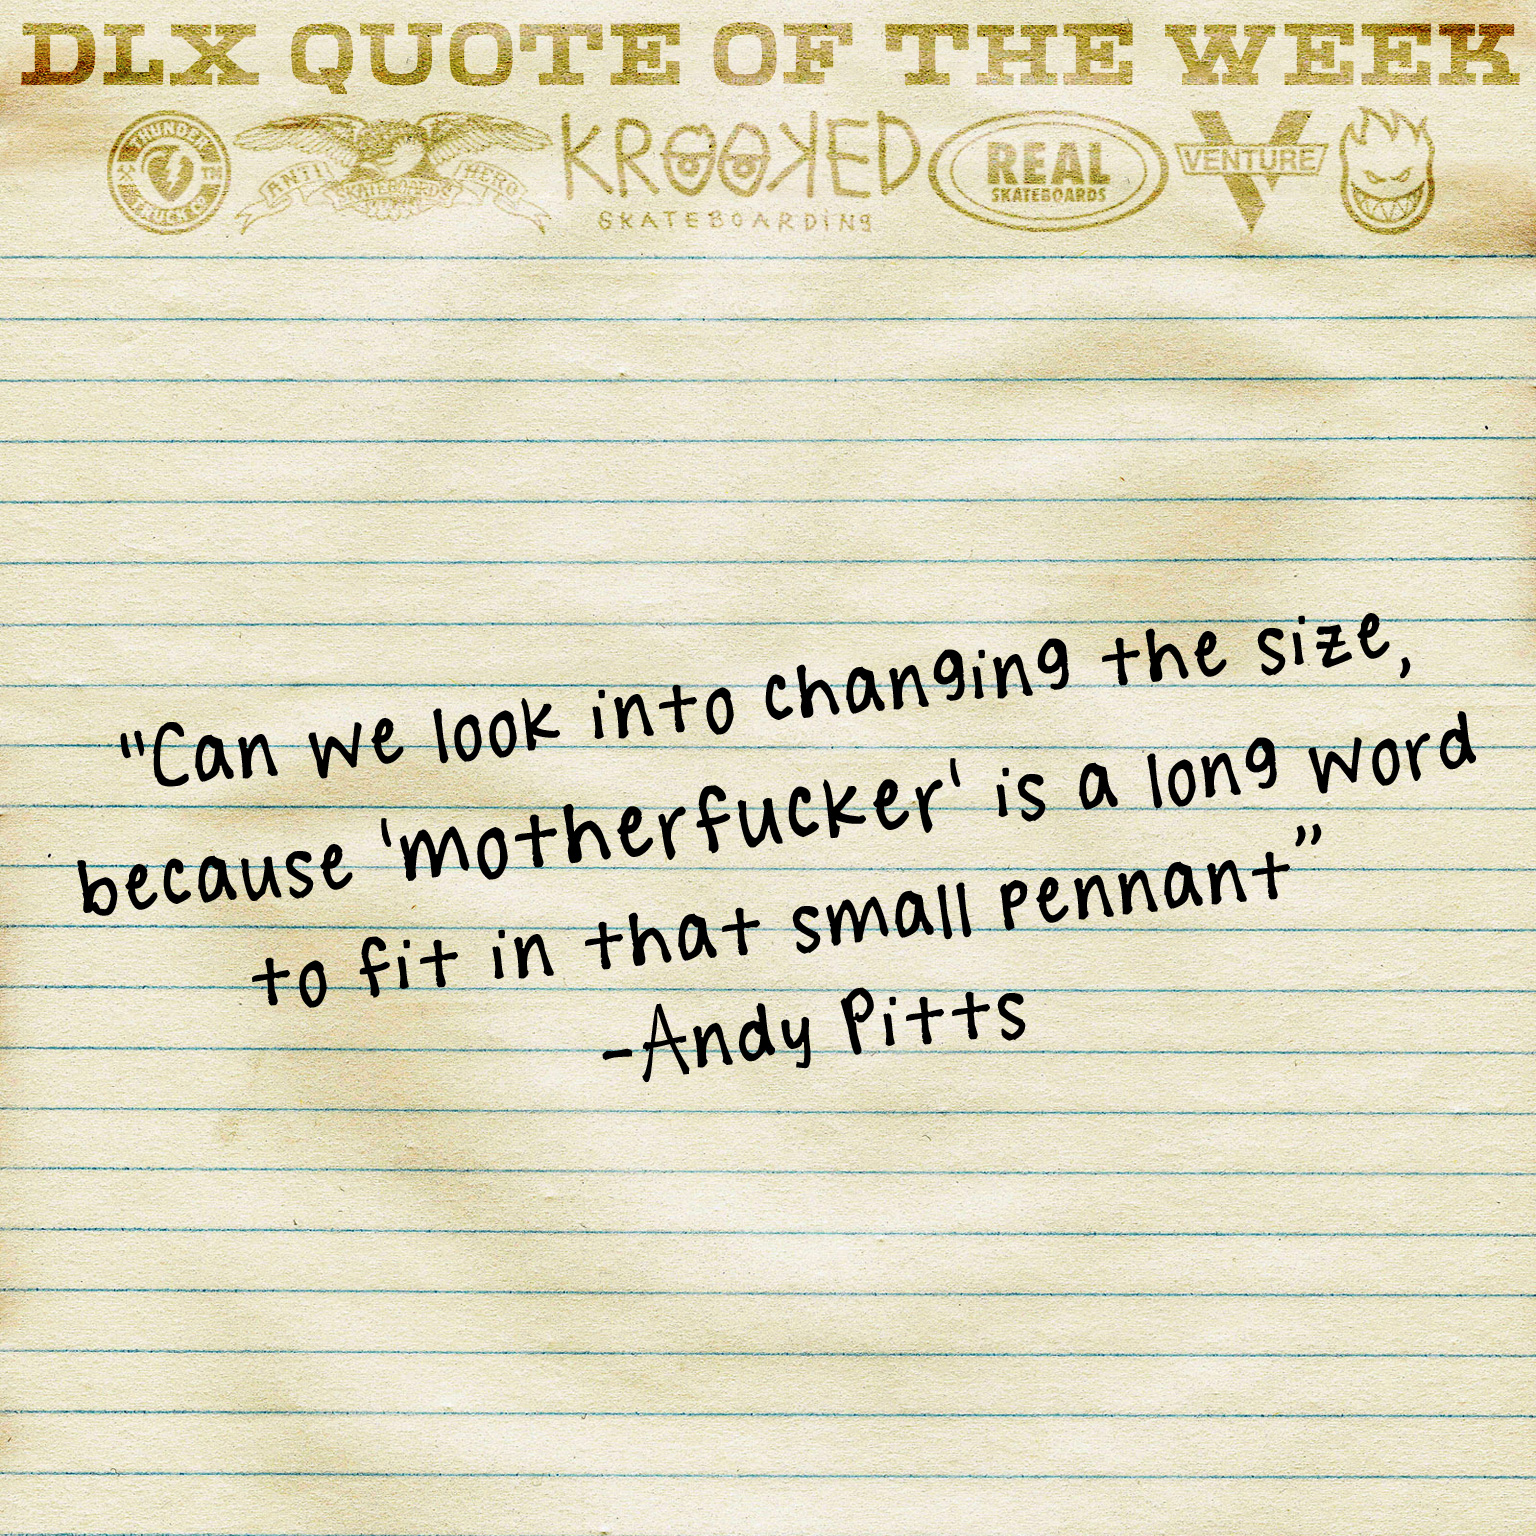 DLX QUOTE OF THE WEEK
THUNDER TRUCK CO TM ANTI HERO SKATEBOARDS KROOKED SKATEBOARDING REAL SKATEBOARDS VENTURE
"Can we look into changing the size,
because 'motherfucker' is a long word
to fit in that small pennant”
-Andy Pitts